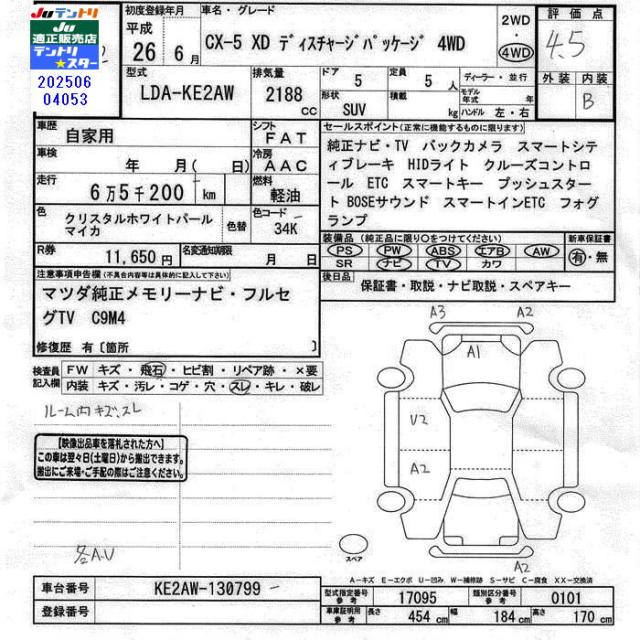 JUテントリ
JU
適正販売店
テントリ
★スター
202506
04053
初度登録年月
平成
26年 6月
車名・グレード
CX-5 XD ディスチャージパッケージ 4WD
2WD
・
4WD
評価点
4.5
外装 内装
B
型式
LDA-KE2AW
排気量
2188
cc
ドア
5
形状
SUV
定員
5人
積載
kg
ディーラー・並行
モデル年式 年式
ハンドル 左・右
車歴
自家用
シフト
FAT
車検
年 月( 日)
冷房
AAC
走行
6万5千200 km
燃料
軽油
色
クリスタルホワイトパール
マイカ
色替
色コード
34K
R券
11,650円
名変通知期限
月 日
セールスポイント(正常に機能するものに限ります。)
純正ナビ・TV バックカメラ スマートシテ
ィブレーキ HIDライト クルーズコントロ
ール ETC スマートキー プッシュスター
ト BOSEサウンド スマートインETC フォグ
ランプ
装備品(純正品に限り○をつけてください)
PS PW ABS エアB AW
SR ナビ TV カワ
新車保証書
有・無
後日品
保証書・取説・ナビ取説・スペアキー
注意事項申告欄(不具合内容等は具体的に記入して下さい)
マツダ純正メモリーナビ・フルセ
グTV C9M4
修復歴 有〔箇所 〕
検査員
記入欄
FW キズ・飛石・ヒビ割・リペア跡・×要
内装 キズ・汚レ・コゲ・穴・スレ・キレ・破レ
ルーム内キズ、スレ
【映像出品車を落札された方へ】
この車は翌々日(土曜日)から搬出できます。
搬出にご来場・ご手配の際はご注意ください。
各A.U
A3
A2
A1
U2
A2
A2
スペア
A-キズ E-エクボ U-凹み W-補修跡 S-サビ C-腐食 XX-交換済
車台番号
KE2AW-130799
登録番号
型式指定番号
参考
17095
類別区分番号
参考
0101
車庫証明用
参考
長さ 454 cm
幅 184 cm
高さ 170 cm